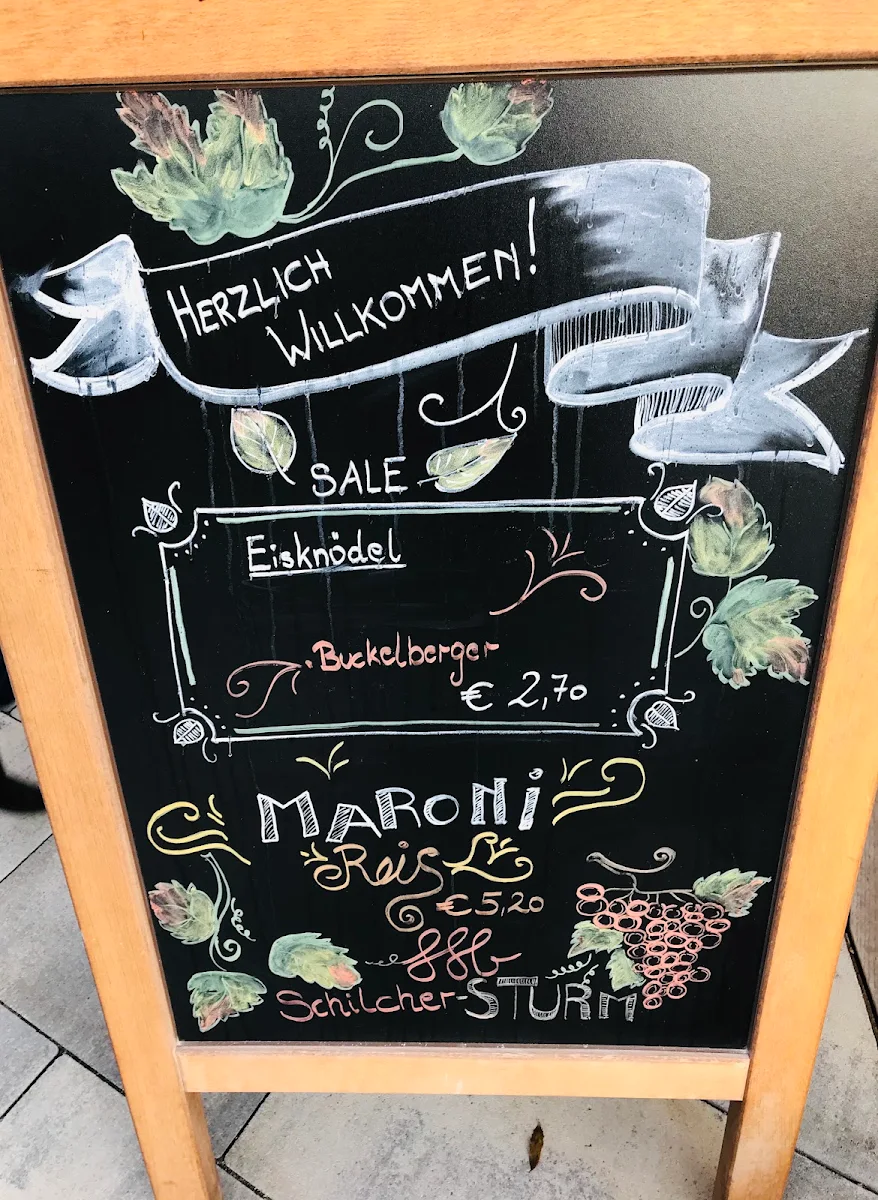 HERZLICH
WILLKOMMEN!
SALE
Eisknödel
Buckelberger
€ 2,70
MARONI
Reis
€ 5,20
Schilcher-STURM